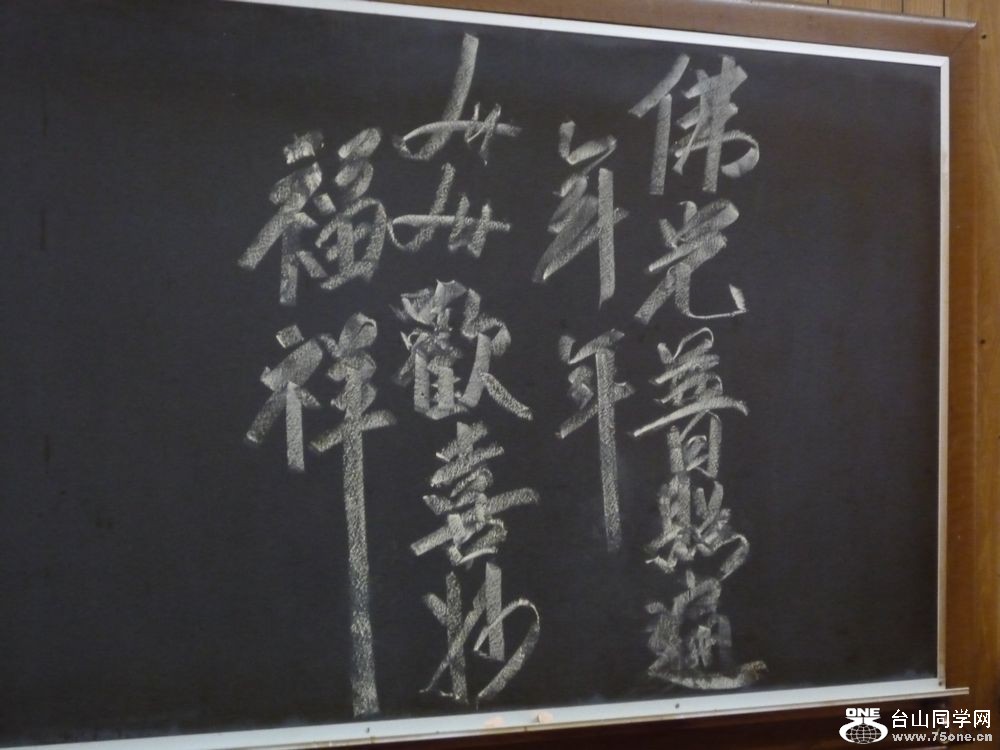 佛光普照遍
年年
歡喜妙
福祥
ONE
台山同学网
www.75one.cn